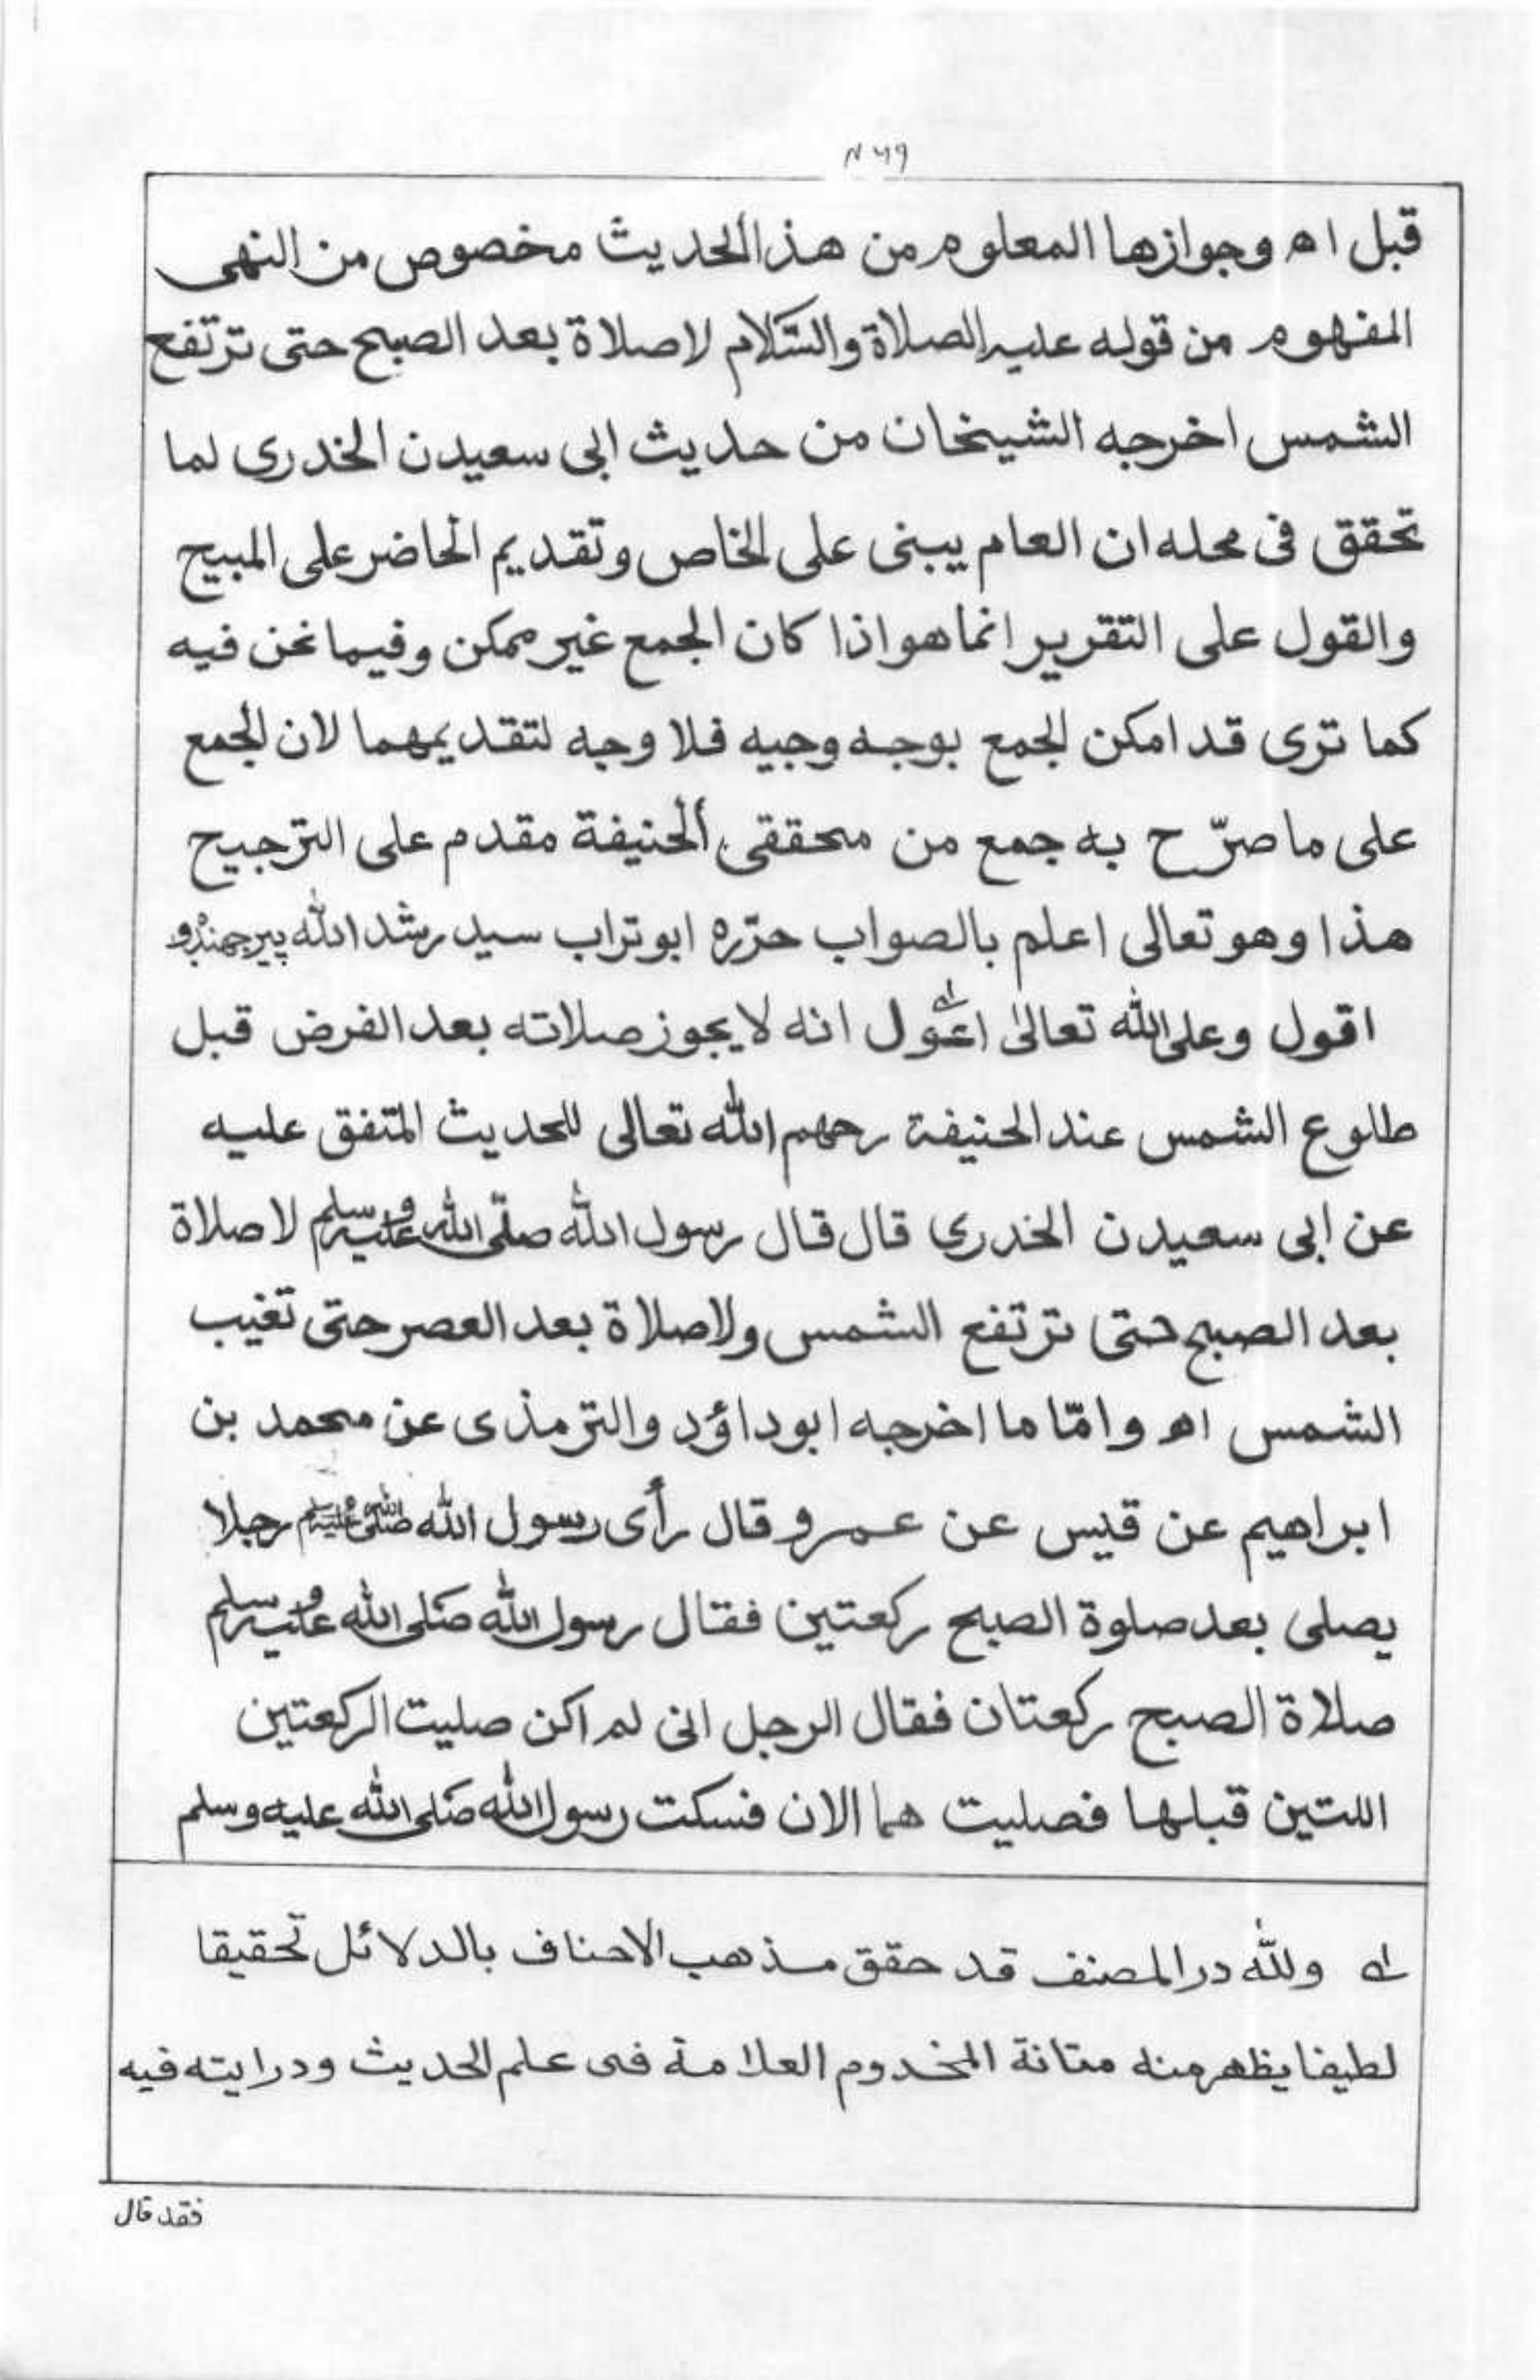 قبل اه وجوازها المعلوم من هذا الحديث مخصوص من النهى
المفهوم من قوله عليه الصلاة والسّلام لاصلاة بعد الصبح حتى ترتفع
الشمس اخرجه الشيخان من حديث ابى سعيدن الخدرى لما
تحقق فى محله ان العام يبنى على الخاص وتقديم الحاضر على المبيح
والقول على التقرير انما هو اذا كان الجمع غير ممكن وفيما نحن فيه
كما ترى قد امكن الجمع بوجه وجيه فلا وجه لتقديمهما لان الجمع
على ما صرّح به جمع من محققى الحنيفة مقدم على الترجيح
هذا وهو تعالى اعلم بالصواب حرّره ابو تراب سيد رشد الله پير جهنڈو
اقول وعلى الله تعالىٰ اعوّل انه لا يجوز صلاته بعد الفرض قبل
طلوع الشمس عند الحنيفة رحهم الله تعالى للحديث المتفق عليه
عن ابى سعيدن الخدرى قال قال رسول الله صلّى الله عليه وسلم لا صلاة
بعد الصبح حتى ترتفع الشمس ولاصلاة بعد العصر حتى تغيب
الشمس اه وامّا ما اخرجه ابوداؤد والترمذى عن محمد بن
ابراهيم عن قيس عن عمرو قال رأى رسول الله صلى الله عليه وسلم رجلا
يصلى بعد صلوة الصبح ركعتين فقال رسول الله صَلى الله عليه وسلم
صلاة الصبح ركعتان فقال الرجل انى لم اكن صليت الركعتين
اللتين قبلها فصليت هما الان فسكت رسول الله صَلى الله عليه وسلم
له ولله در المصنف قد حقق مذهب الاحناف بالدلائل تحقيقا
لطيفا يظهر منه متانة المخدوم العلامة فى علم الحديث ودرايته فيه
فقد قال